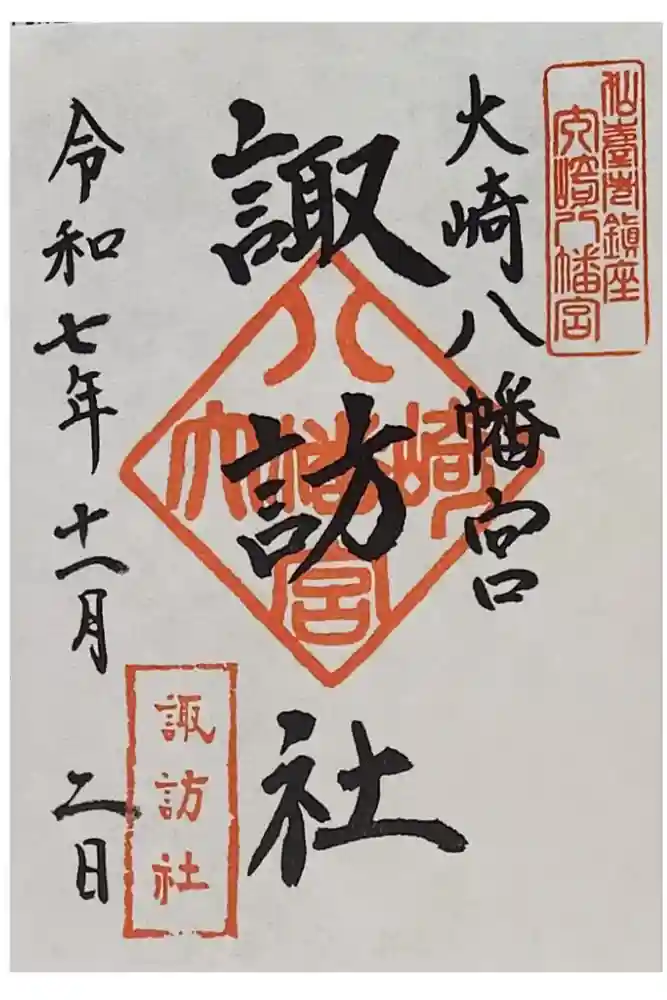 大崎八幡宮
大崎八幡宮
諏訪社
大崎八幡宮
令和七年十一月二日
諏訪社